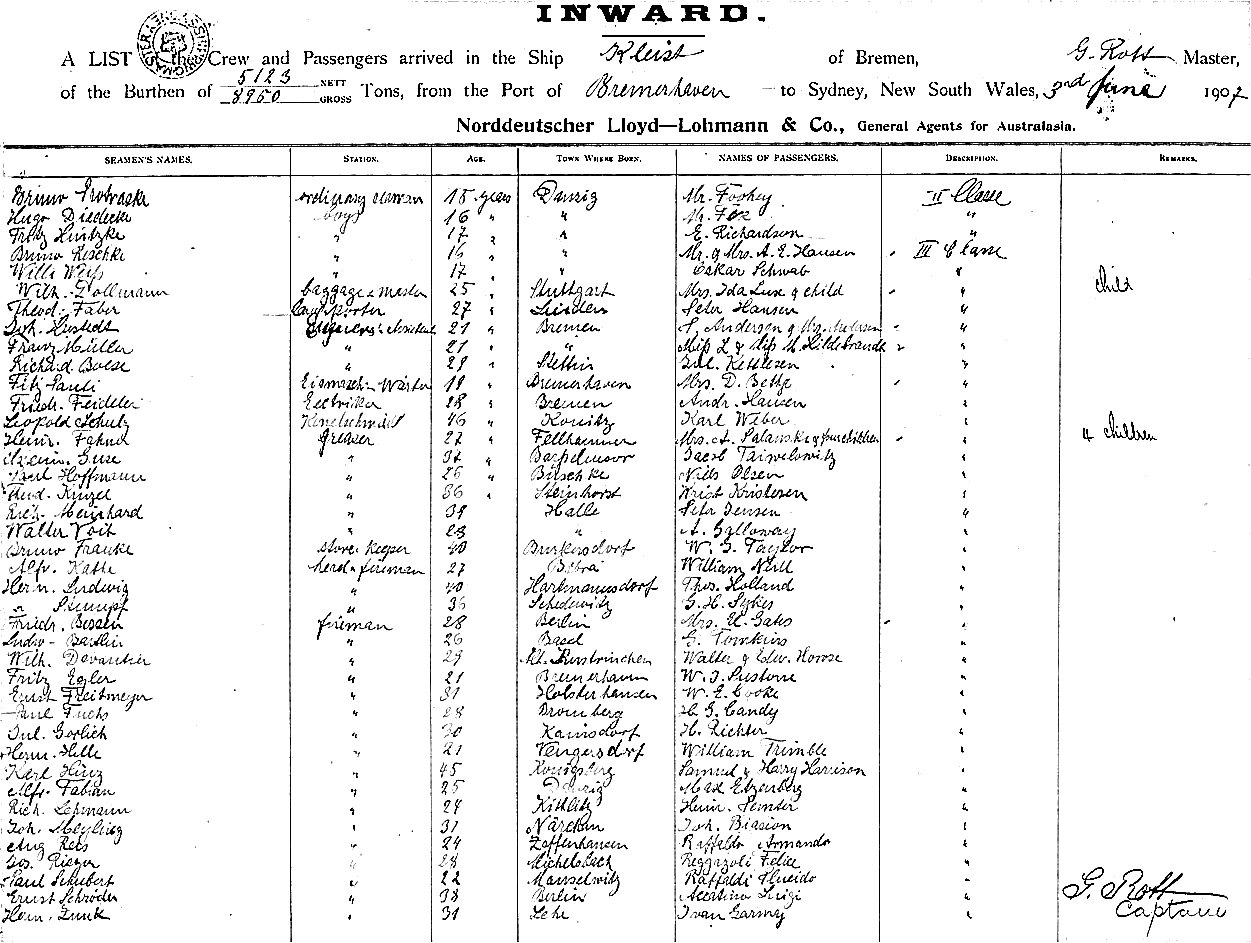 INWARD.
A LIST of the Crew and Passengers arrived in the Ship Kleist of Bremen, G. Rott Master,
of the Burthen of 5123 NETT 8950 GROSS Tons, from the Port of Bremerhaven to Sydney, New South Wales, 3rd June 1907
Norddeutscher Lloyd—Lohmann & Co., General Agents for Australasia.
SEAMEN'S NAMES. STATION. AGE. TOWN WHERE BORN. NAMES OF PASSENGERS. DESCRIPTION. REMARKS.
Bruno ordinary seaman 15 years Danzig Mr. Foohey II Classe
Hugo Diedecke boys 16 " " Mr. Fox "
Fritz Hintzke " 17 " " E. Richardson "
Bruno Reschke " 16 " " Mr. & Mrs. A. E. Hansen III Classe
Willi " 17 " " Oskar Schwab "
Wilh. Gollmann baggage-master 25 " Stuttgart Mrs. Ida Lux & child " child
Theod. Faber porter 27 " Linden Peter Hansen "
Joh. 21 " Bremen Anderson & Mrs. "
Franz Müller " 21 " " Miss L & Miss M. Hildebrandt "
Richard Boese " 29 " Stettin Jul. Kettlesen "
Fitz Pauli Eismasch.-Wärter 19 " Bremerhaven Mrs. D. Bethe "
Friedr. Feideler 28 " Bremen Andr. Hansen "
Leopold Schulz Kesselschmidt 46 " Konitz Karl Weber "
Heinr. greaser 27 " Fellhammer Mrs. A. & four children " 4 children
Guse " " Jacob "
Paul Hoffmann " 25 " Buschke Niels Olsen "
Theod. Kinzel " 36 " Steinhorst Krist Kristesen "
Rich. Meinhard " 39 Halle Peter Jensen "
Walter Voit " " A. Galloway "
Bruno Franke store-keeper 40 Burkersdorf W. G. Taylor "
Alfr. Kathe head-fireman 27 Bebra William Neill "
Herm. Ludwig " 40 Hartmannsdorf Thos. Holland "
" " 36 Schedewitz G. H. Sykes "
Friedr. Bessen fireman 28 Berlin Mrs. Gates "
Ludw. " 26 Basel G. Tomkins "
Wilh. Devantier " 29 Walter & Edw. "
Fritz Egler " 21 Bremerhaven W. J. "
Ernst Freitmeyer " 31 Holsterhausen W. E. Cooke "
Paul Fuchs " 28 Bromberg H. G. Candy "
Jul. Gorlich " 30 Kamsdorf H. Richter "
Herm. Hille " 21 Vengersdorf William Trimble "
Karl Hinz " 45 Königsberg Samuel & Harry Harrison "
Alfr. Fabian " 25 Danzig Max Etzenberg "
Rich. Lehmann " 24 Kittlitz Heinr. "
Joh. Meyling " 31 Joh. Biasion "
Aug Reis " 24 Zaffenhausen Raffaldo Armando "
Jos. Rieger " 28 Michelsbach Reggazoli Felice "
Paul Schubert " 22 Manselwitz Raffaldi "
Ernst Schröder " 38 Berlin Luigi "
Herm. Zunk " 31 Lehe Ivan Garmy "
G. Rott
Captain